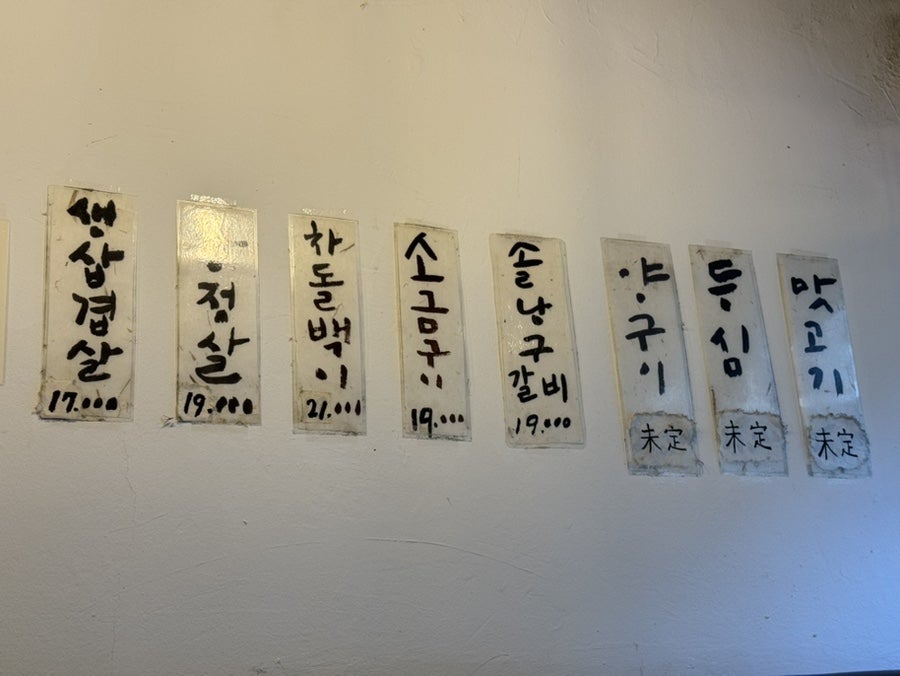 생삼겹살
17.000
정살
19.000
차돌백이
21.000
소금구이
19.000
솔낭구
갈비
19.000
양구이
未定
등심
未定
맛고기
未定